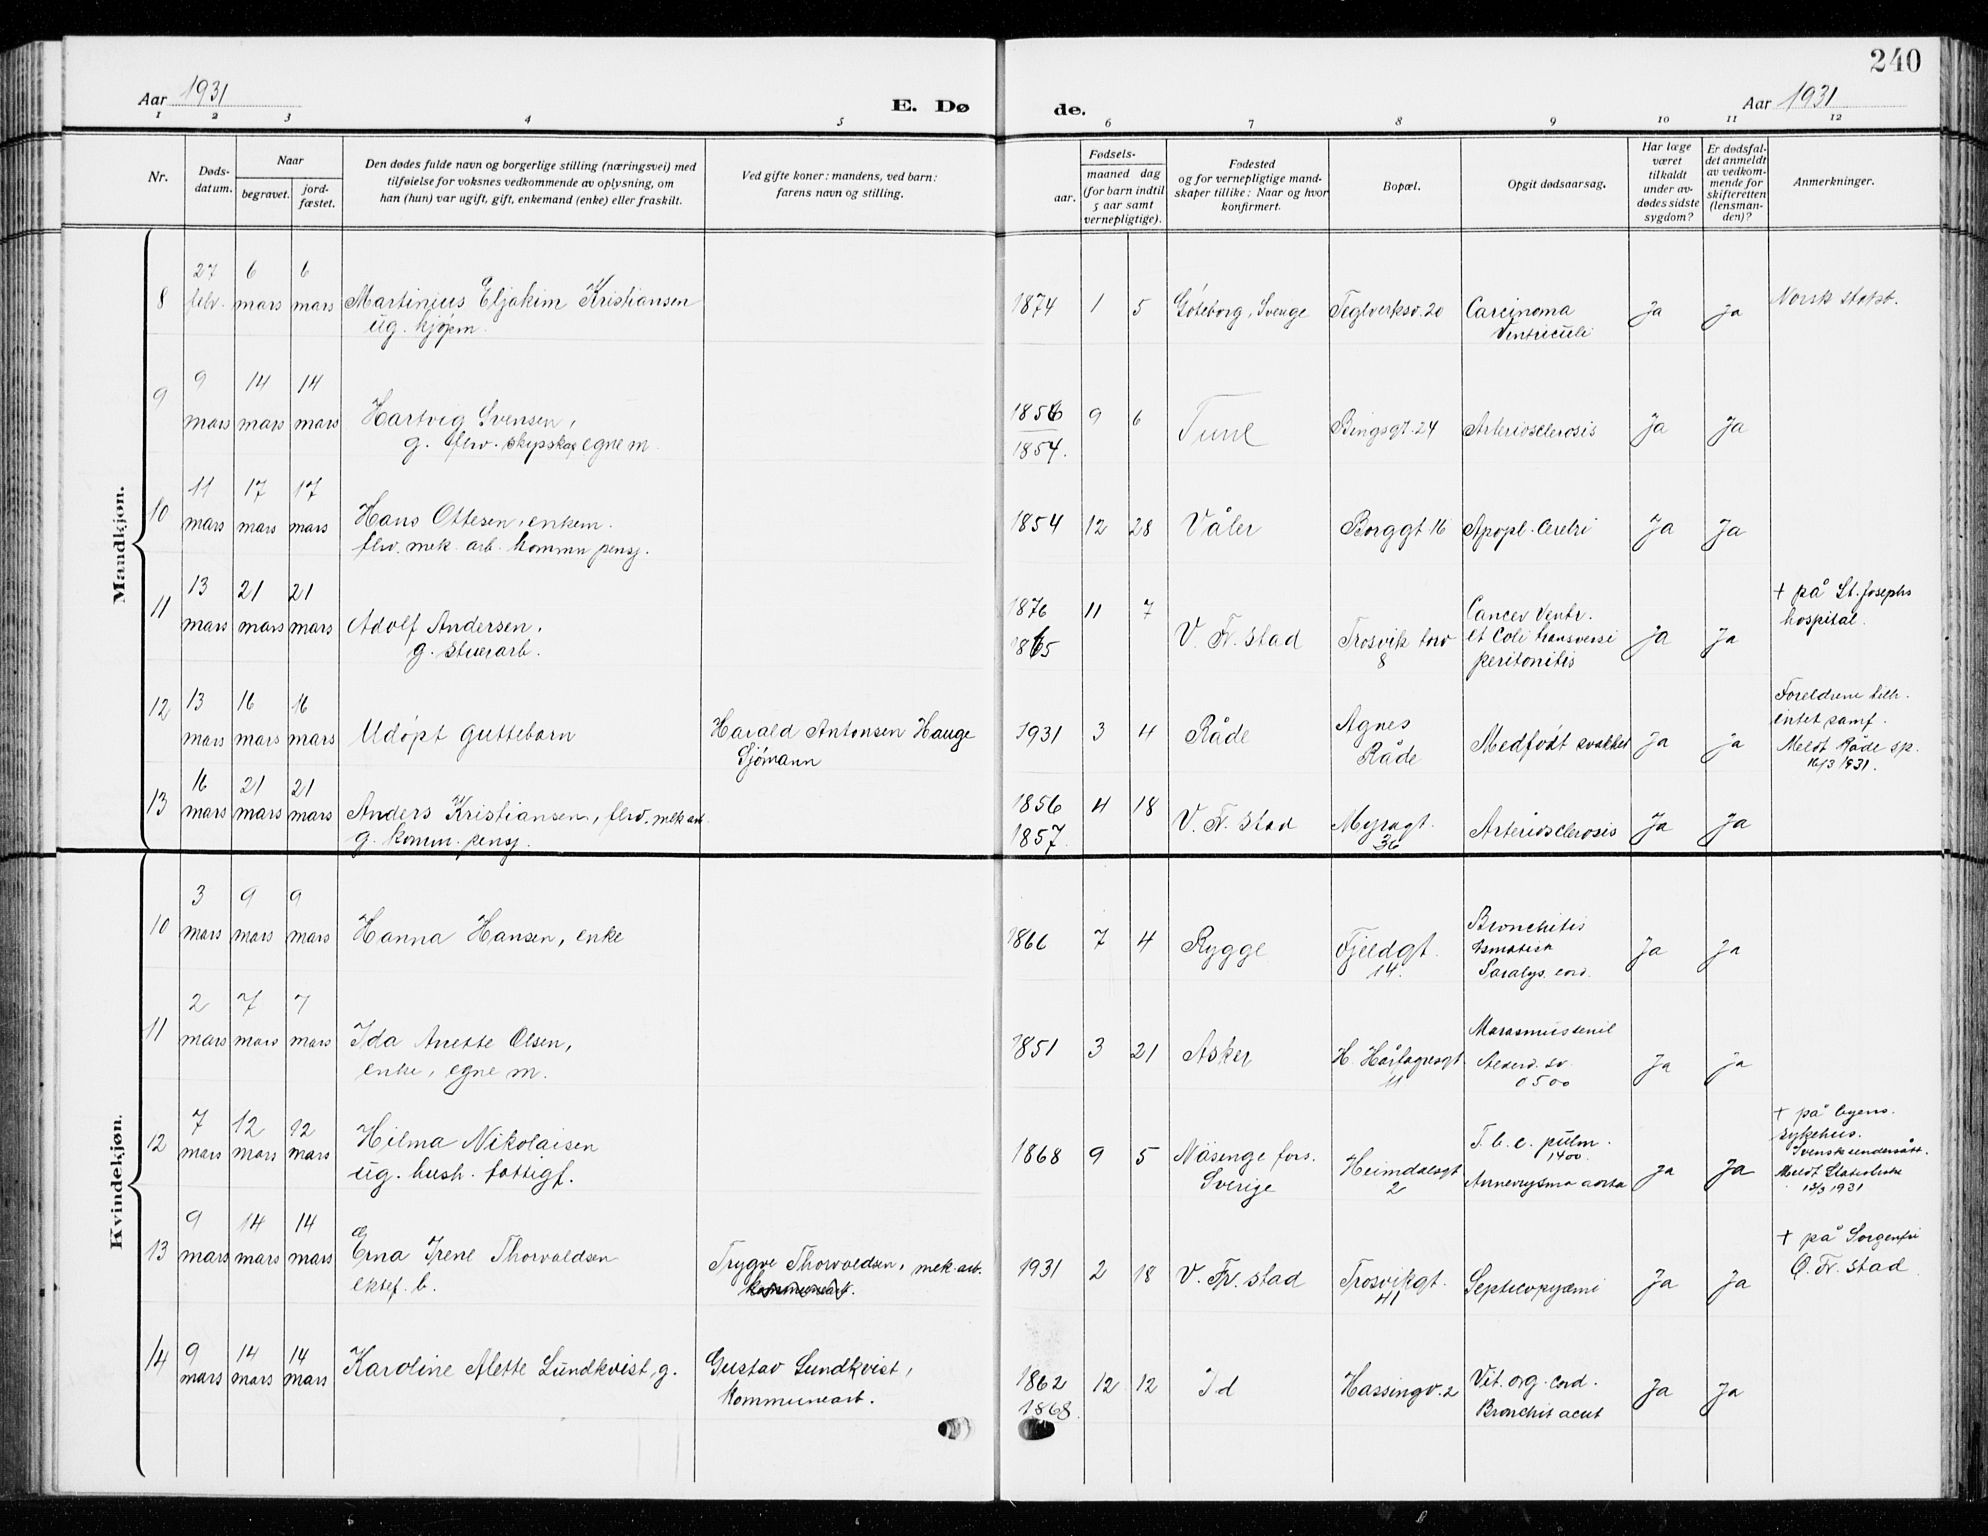 240
Aar 1931
E. Dø de.
Aar 1931
1 2 3 4 5 6 7 8 9 10 11 12
Nr.
Døds-
datum.
Naar
begravet.
jord-
fæstet.
Den dødes fulde navn og borgerlige stilling (næringsvei) med
tilføielse for voksnes vedkommende av oplysning, om
han (hun) var ugift, gift, enkemand (enke) eller fraskilt.
Ved gifte koner: mandens, ved barn:
farens navn og stilling.
Fødsels-
aar.
maaned dag
(for barn indtil
5 aar samt
vernepligtige).
Fødested
og for vernepligtige mand-
skaper tillike: Naar og hvor
konfirmert.
Bopæl.
Opgit dødsaarsag.
Har læge
været
tilkaldt
under av-
dødes sidste
sygdom?
Er dødsfal-
det anmeldt
av vedkom-
mende for
skifteretten
(lensman-
den)?
Anmerkninger.
Mandkjøn.
8 27 febr. 6 mars 6 mars Martinius Eljakim Kristiansen
ug. kjøpm.
1874 1 5 Göteborg, Sverige Teglverksv. 20 Carcinoma
Ventriculi
Ja Ja Norsk statsb.
9 9 mars 14 mars 14 mars Hartvig Svensen,
g. fhv. egne m.
1856
1854.
9 6 Tune Bingsgt. 24 Arteriosclerosis Ja Ja
10 11 mars 17 mars 17 mars Hans Ottesen, enkem.
fhv. mek. arb. kommu pensj.
1854 12 28 Våler Borggt 16 Apopl. Cerebri Ja Ja
11 13 mars 21 mars 21 mars Adolf Andersen,
g. stuerarb.
1876
1865
11 7 V. Fr. stad Trosvik torv
8
Cancer Ventr.
et Coli transversi
peritonitis
Ja Ja
+ på St. Josephs
hospital.
12 13 mars 16 mars 16 mars Udøpt guttebarn
Harald Antonsen Hauge
Sjømann
1931 3 4 Råde Agnes
Råde
Medfødt svakhet Ja Ja
Foreldrene tilh.
intet samf.
Meldt Råde sp.
16/3 1931.
13 16 mars 21 mars 21 mars Anders Kristiansen, fhv. mek arb
g. komm. pensj.
1856
1857.
4 18 V. Fr. stad Myragt.
36
Arteriosclerosis Ja Ja
Kvindekjøn.
10 3 mars 9 mars 9 mars Hanna Hansen, enke
1866 7 4 Rygge Fjeldgt.
14.
Bronchitis
Asmatica
Paralys. cord.
Ja Ja
11 2 mars 7 mars 7 mars Ida Anette Olsen,
enke, egne m.
1851 3 21 Asker H. Hårfagresgt
11
Marasmus senil
Alderd. sv.
0500
Ja Ja
12 7 mars 12 mars 12 mars Hilma Nikolaisen
ug. hush. fattigf.
1868 9 5 Näsinge fors.
Sverige
Heimdalsgt
2
T. b. c. pulm.
1400
Annevrysma aorta
Ja Ja
+ på byens
sykehus.
Svensk undersått.
Meldt
12/3 1931
13 9 mars 14 mars 14 mars Erna Irene Thorvaldsen
ektef. b.
Trygve Thorvaldsen, mek. arb.
kommunearb.
1931 2 18 V. Fr. stad Trosvikgt.
41
Septicopyæmi Ja Ja
+ på Sorgenfri
Ø. Fr. stad
14 9 mars 14 mars 14 mars Karoline Alette Lundkvist, g.
Gustav Lundkvist,
kommunearb.
1862
1868.
12 12 Id Hassingv. 2 Vit. org. cord.
Bronchit acut
Ja Ja